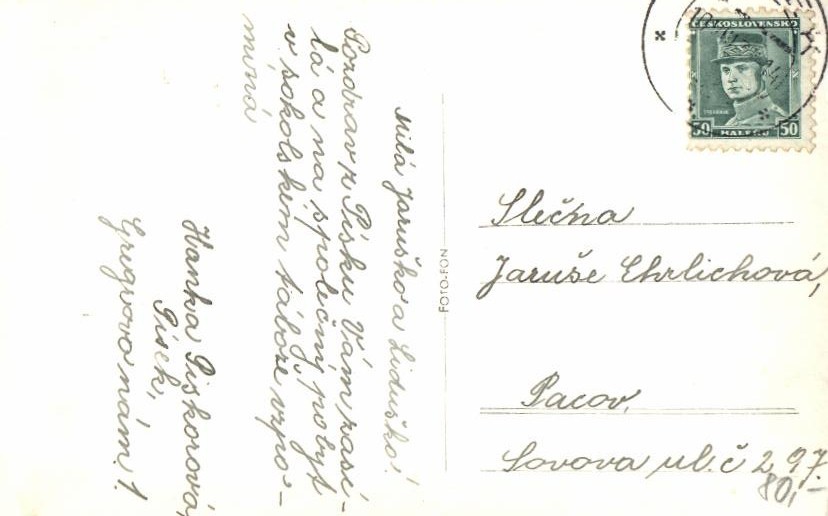 Milá Jaruško a Liduško!
Pozdrav z Písku Vám zasí-
lá a na společný pobyt
v sokolském táboře vzpo-
míná
Hanka Piskorová,
Písek,
Grégrovo nám. 1.
FOTO-FON
ČESKOSLOVENSKO
50 HALÉŘŮ 50
Slečna
Jaruše Ehrlichová,
Pacov,
Lovova ul. č 297.
80,-